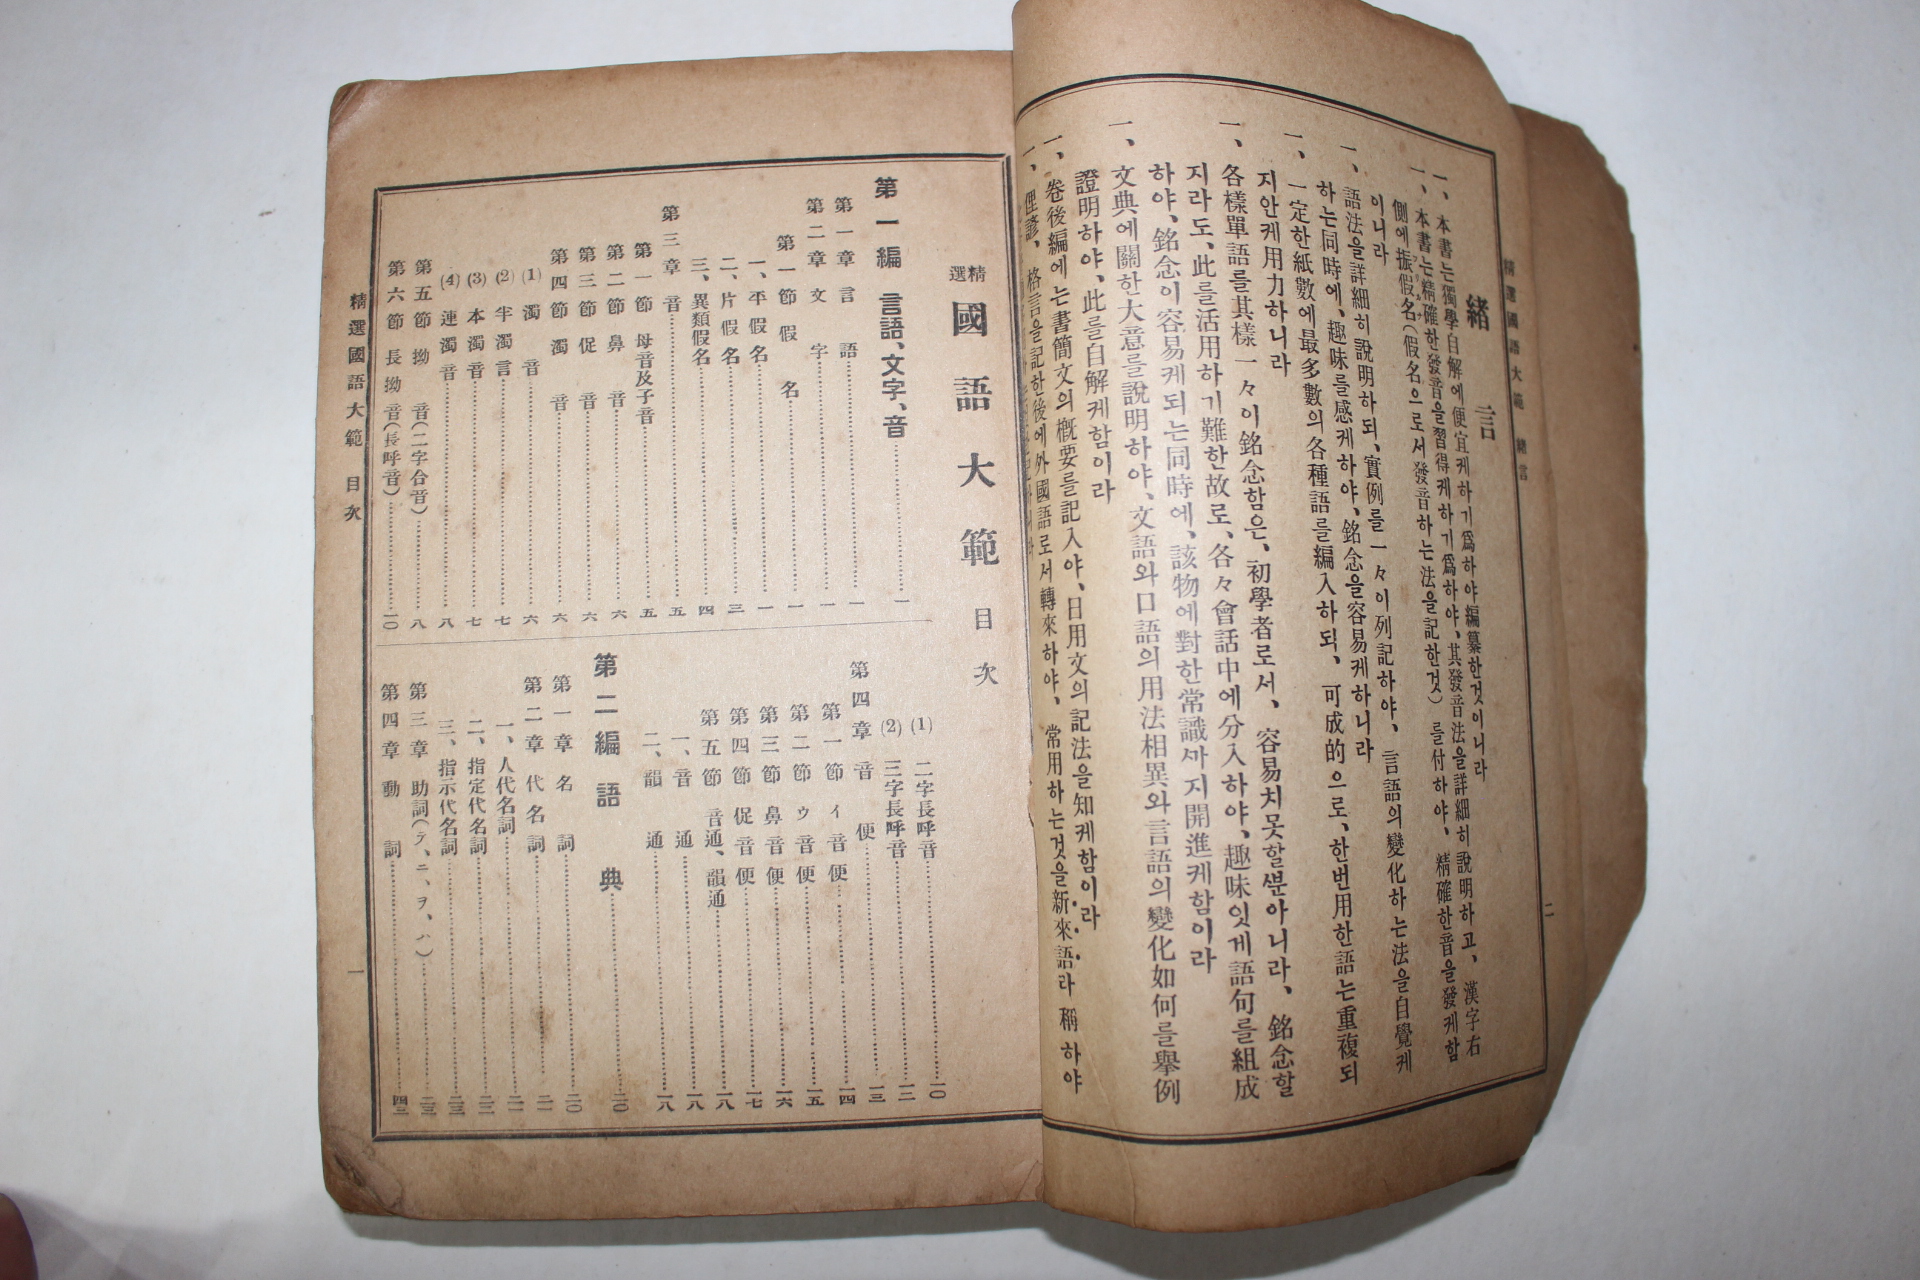 精選國語大範 緖言
緖言
一、本書는獨學自解에便宜케하기爲하야編纂한것이니라
一、本書는精確한發音을習得케하기爲하야、其發音法을詳細히說明하고、漢字右
側에振假名(假名으로서發音하는法을記한것)를付하야、精確한音을發케함
이니라
一、語法을詳細히說明하되、實例를一々이列記하야、言語의變化하는法을自覺케
하는同時에、趣味를感케하야、銘念을容易케하니라
一、一定한紙數에最多數의各種語를編入하되、可成的으로、한번用한語는重複되
지안케用力하니라
一、各樣單語를其樣一々이銘念함은、初學者로서、容易치못할ᄲᅮᆫ아니라、銘念할
지라도、此를活用하기難한故로、各々會話中에分入하야、趣味잇게語句를組成
하야、銘念이容易케되는同時에、該物에對한常識ᄭᅡ지開進케함이라
一、文典에關한大意를說明하야、文語와口語의用法相異와言語의變化如何를擧例
證明하야、此를自解케함이라
一、卷後編에는書簡文의槪要를記入야、日用文의記法을知케함이라
一、俚諺、格言을記한後에外國語로서轉來하야、常用하는것을新來語라稱하야
二
精選 國語大範 目次
第一編 言語、文字、音……一
第一章 言語……一
第二章 文字……一
第一節 假名……一
一、平假名……一
二、片假名……三
三、異類假名……四
第三章 音……五
第一節 母音及子音……五
第二節 鼻音……六
第三節 促音……六
第四節 濁音……六
(1) 濁音……六
(2) 半濁言……七
(3) 本濁音……七
(4) 連濁音……八
第五節 拗音(二字合音)……八
第六節 長拗音(長呼音)……一〇
(1) 二字長呼音……一〇
(2) 三字長呼音……一二
第四章 音便……一三
第一節 イ音便……一四
第二節 ウ音便……一五
第三節 鼻音便……一六
第四節 促音便……一七
第五節 音通、韻通……一八
一、音通……一八
二、韻通……一八
第二編 語典……二〇
第一章 名詞……二〇
第二章 代名詞……二一
一、人代名詞……二一
二、指定代名詞……二二
三、指示代名詞……二三
第三章 助詞(テ、ニ、ヲ、ハ)……二三
第四章 動詞……四二
精選國語大範 目次
一